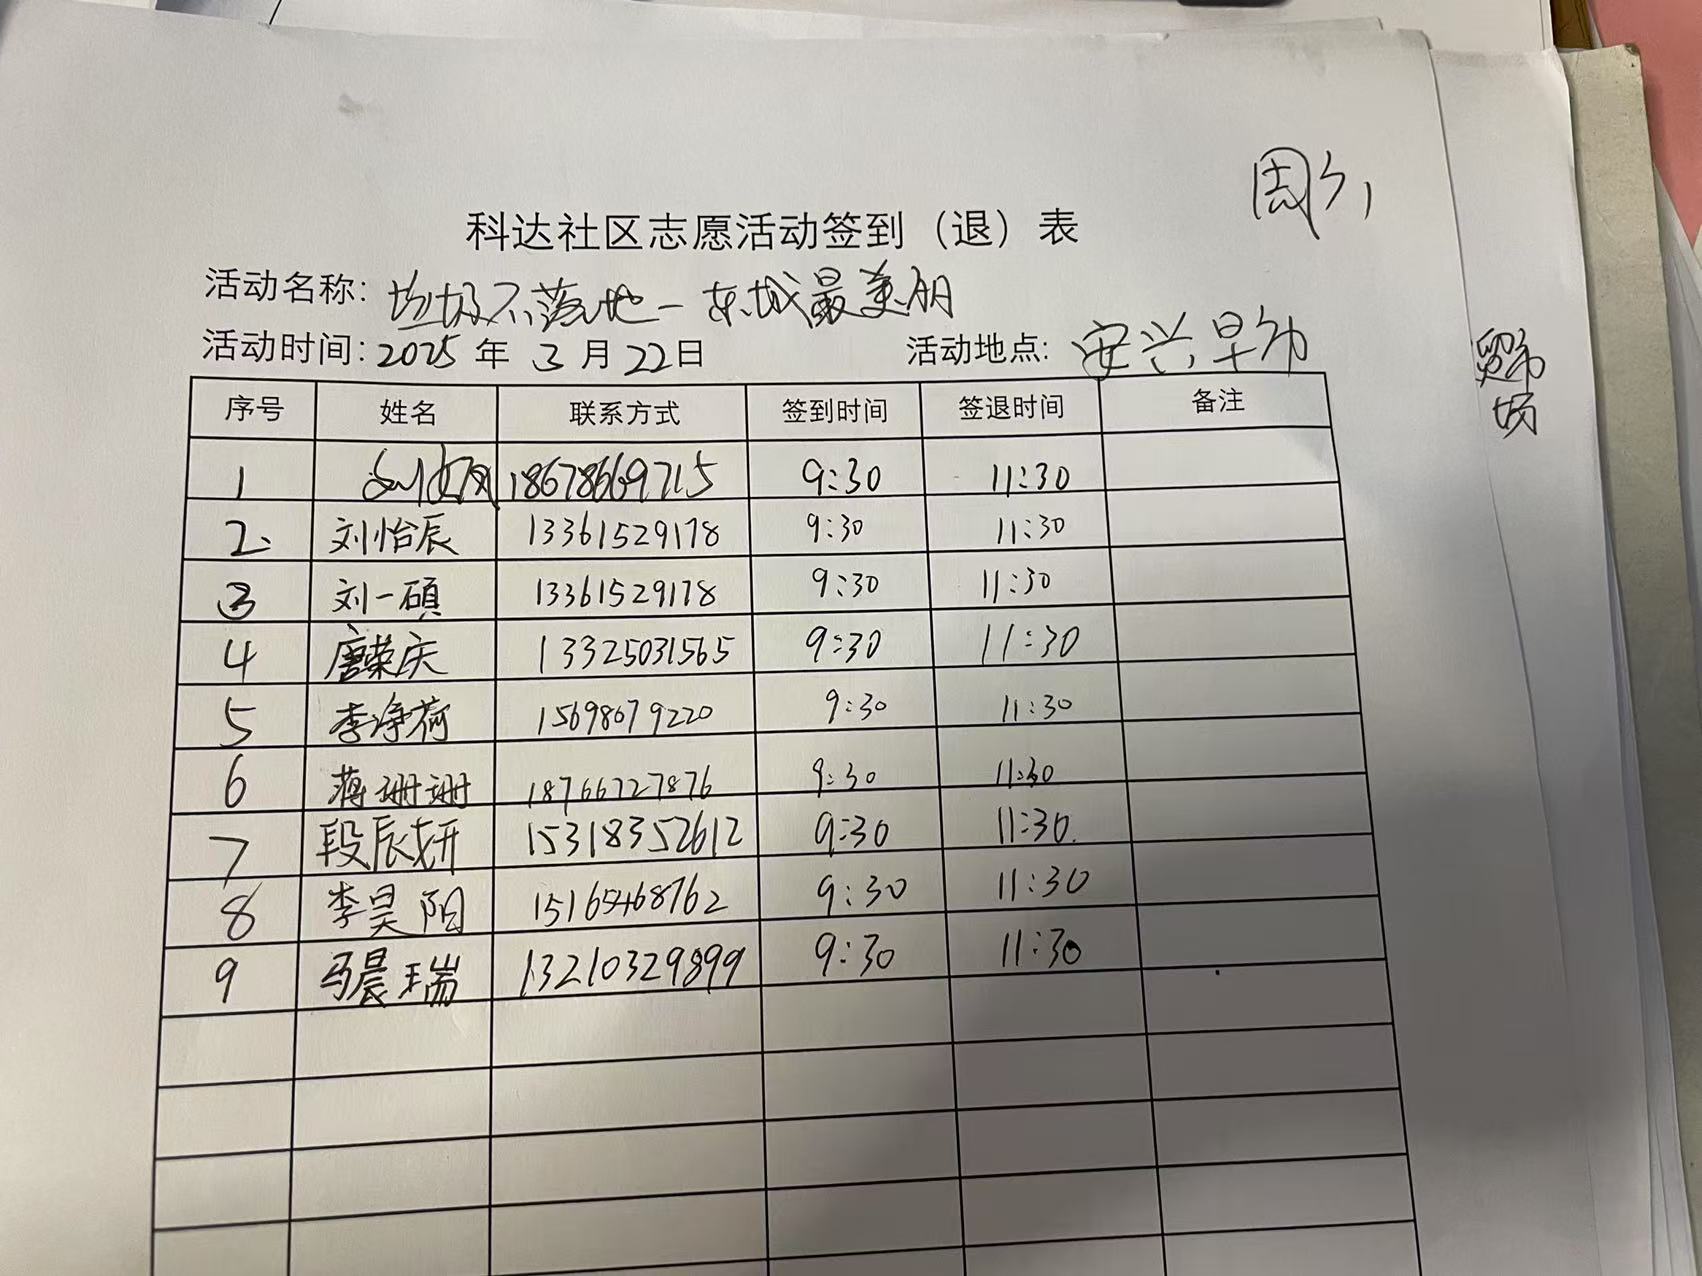 科达社区志愿活动签到（退）表
活动名称: 垃圾不落地一东城最美丽
活动时间: 2025年3月22日 活动地点: 安兴早市
序号 姓名 联系方式 签到时间 签退时间 备注
1 18678669715 9:30 11:30
2. 刘怡辰 13361529178 9:30 11:30
3 刘一碩 13361529178 9:30 11:30
4 唐荣庆 13325031565 9:30 11:30
5 李净荷 15698679220 9:30 11:30
6 蒋珊珊 18766727876 9:30 11:30
7 段辰妍 15318352612 9:30 11:30.
8 李昊阳 15165468762 9:30 11:30
9 马晨瑞 13210329899 9:30 11:30